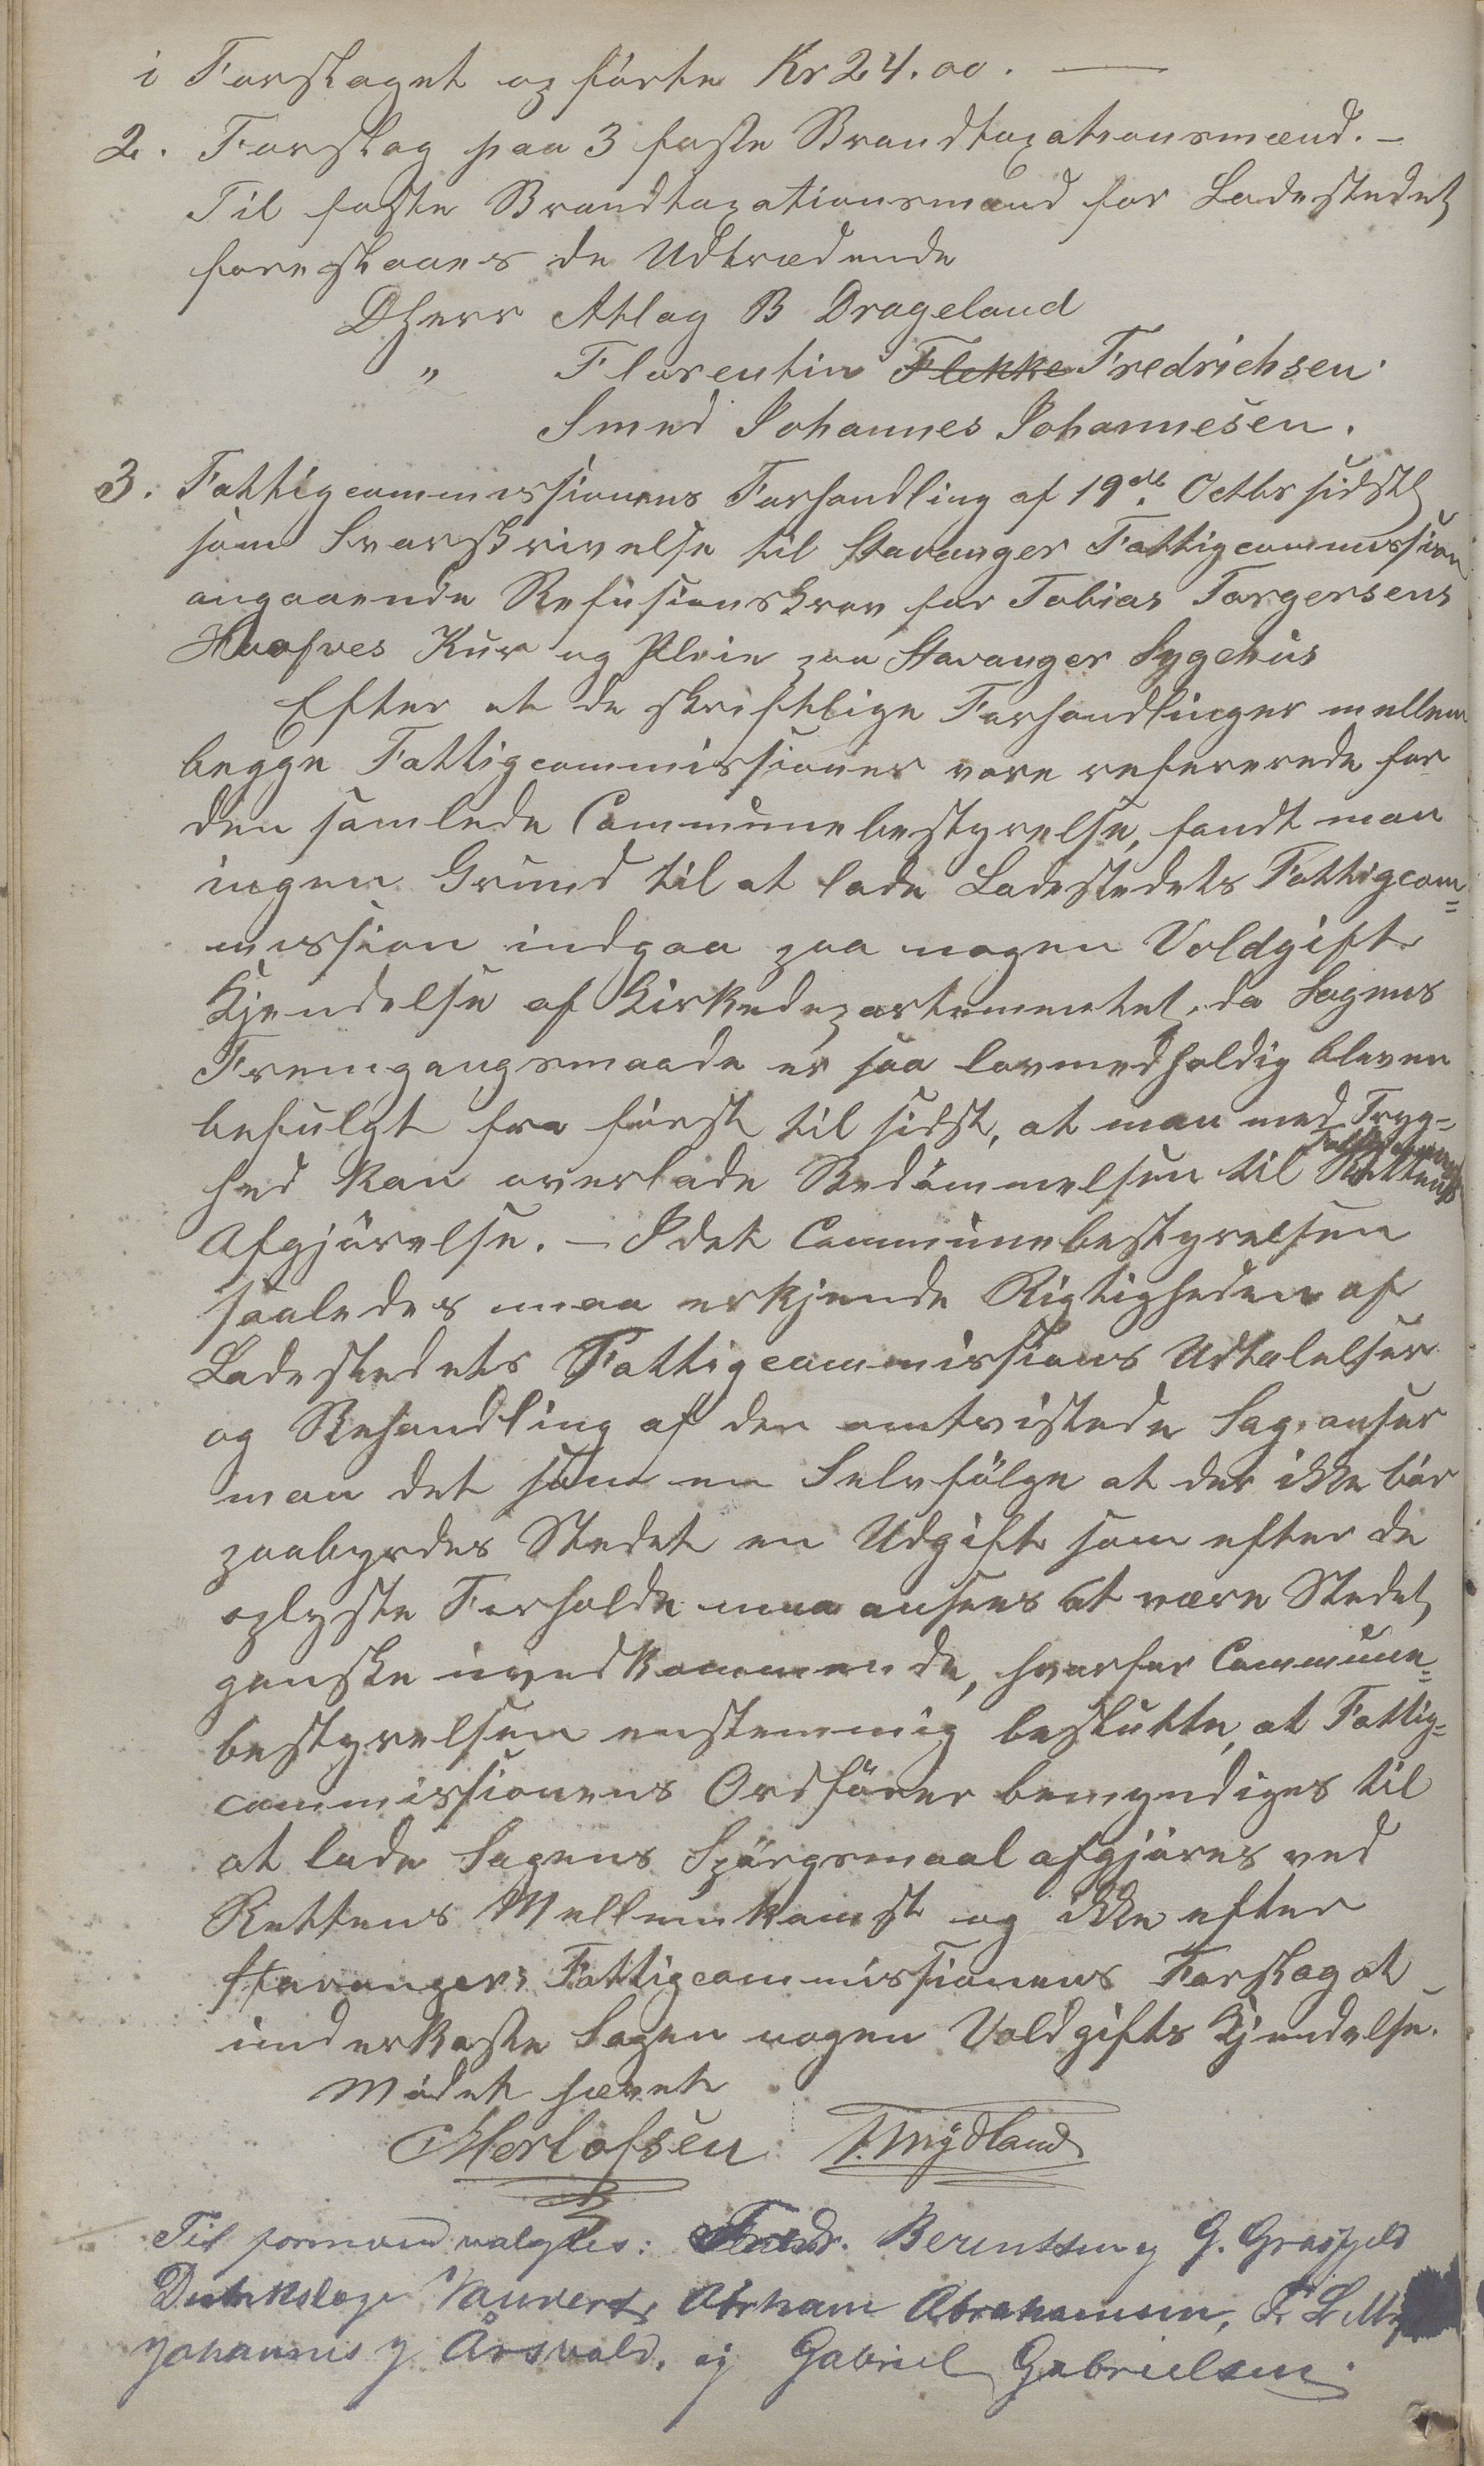 i Forslaget opførte Kr 24.00. —
2. Forslag paa 3 faste Brandtaxationsmænd. –
Til faste Brandtaxationsmænd for Ladestedet
foreslaaes de Udtrædende
DHerr Atlag B Drageland
" Florentin Flekke Fredrichsen.
Smed Johannes Johannesen.
3. Fattigcommissionens Forhandling af 19de Octbr sidstl
som Svarskrivelse til Stavanger Fattigcommission
angaaende Refusionskrav for Tobias Torgersens
Kur og Pleie paa Stavanger Sygehus
Efter at de skriftlige Forhandlinger mellem
begge Fattigcommissioner vare refererede for
den samlede Communebestyrelse, fandt man
ingen Grund til at lade Ladestedets Fattigcom=
mission indgaa paa nogen Voldgifts
Kjendelse af Kirkedepartementet, da Sagens
Fremgangsmaade er saa lovmedholdig bleven
befulgt fra først til sidst, at man med Tryg=
hed kan overlade Bedømmelsen til Rettens
Afgjørelse. – Idet Communebestyrelsen
saaledes maa erkjende Rigtigheden af
Ladestedets Fattigcommissions Udtalelser
og Behandling af den omtvistede Sag, anser
man det som en Selvfølge at der ikke bør
paabyrdes Stedet en Udgift som efter de
oplyste Forholde maa ansees at være Stedet
ganske uvedkommende, hvorfor Commune=
bestyrelsen enstemmig besluttede, at Fattig=
commissionens Ordfører bemyndiges til
at lade Sagens Spørgsmaal afgjøres ved
Rettens Mellemkomst og ikke efter
Stavanger Fattigcommissionens Forslag at
underkaste Sagen nogen Voldgifts Kjendelse.
Mødet hævet
Herlofsen T. Mydland
Til formænd valgtes: Fredr. Berentsen og G.
Abrham Abrahamsen,
Johannes J Årsvold, og Gabriel Gabrielsen.